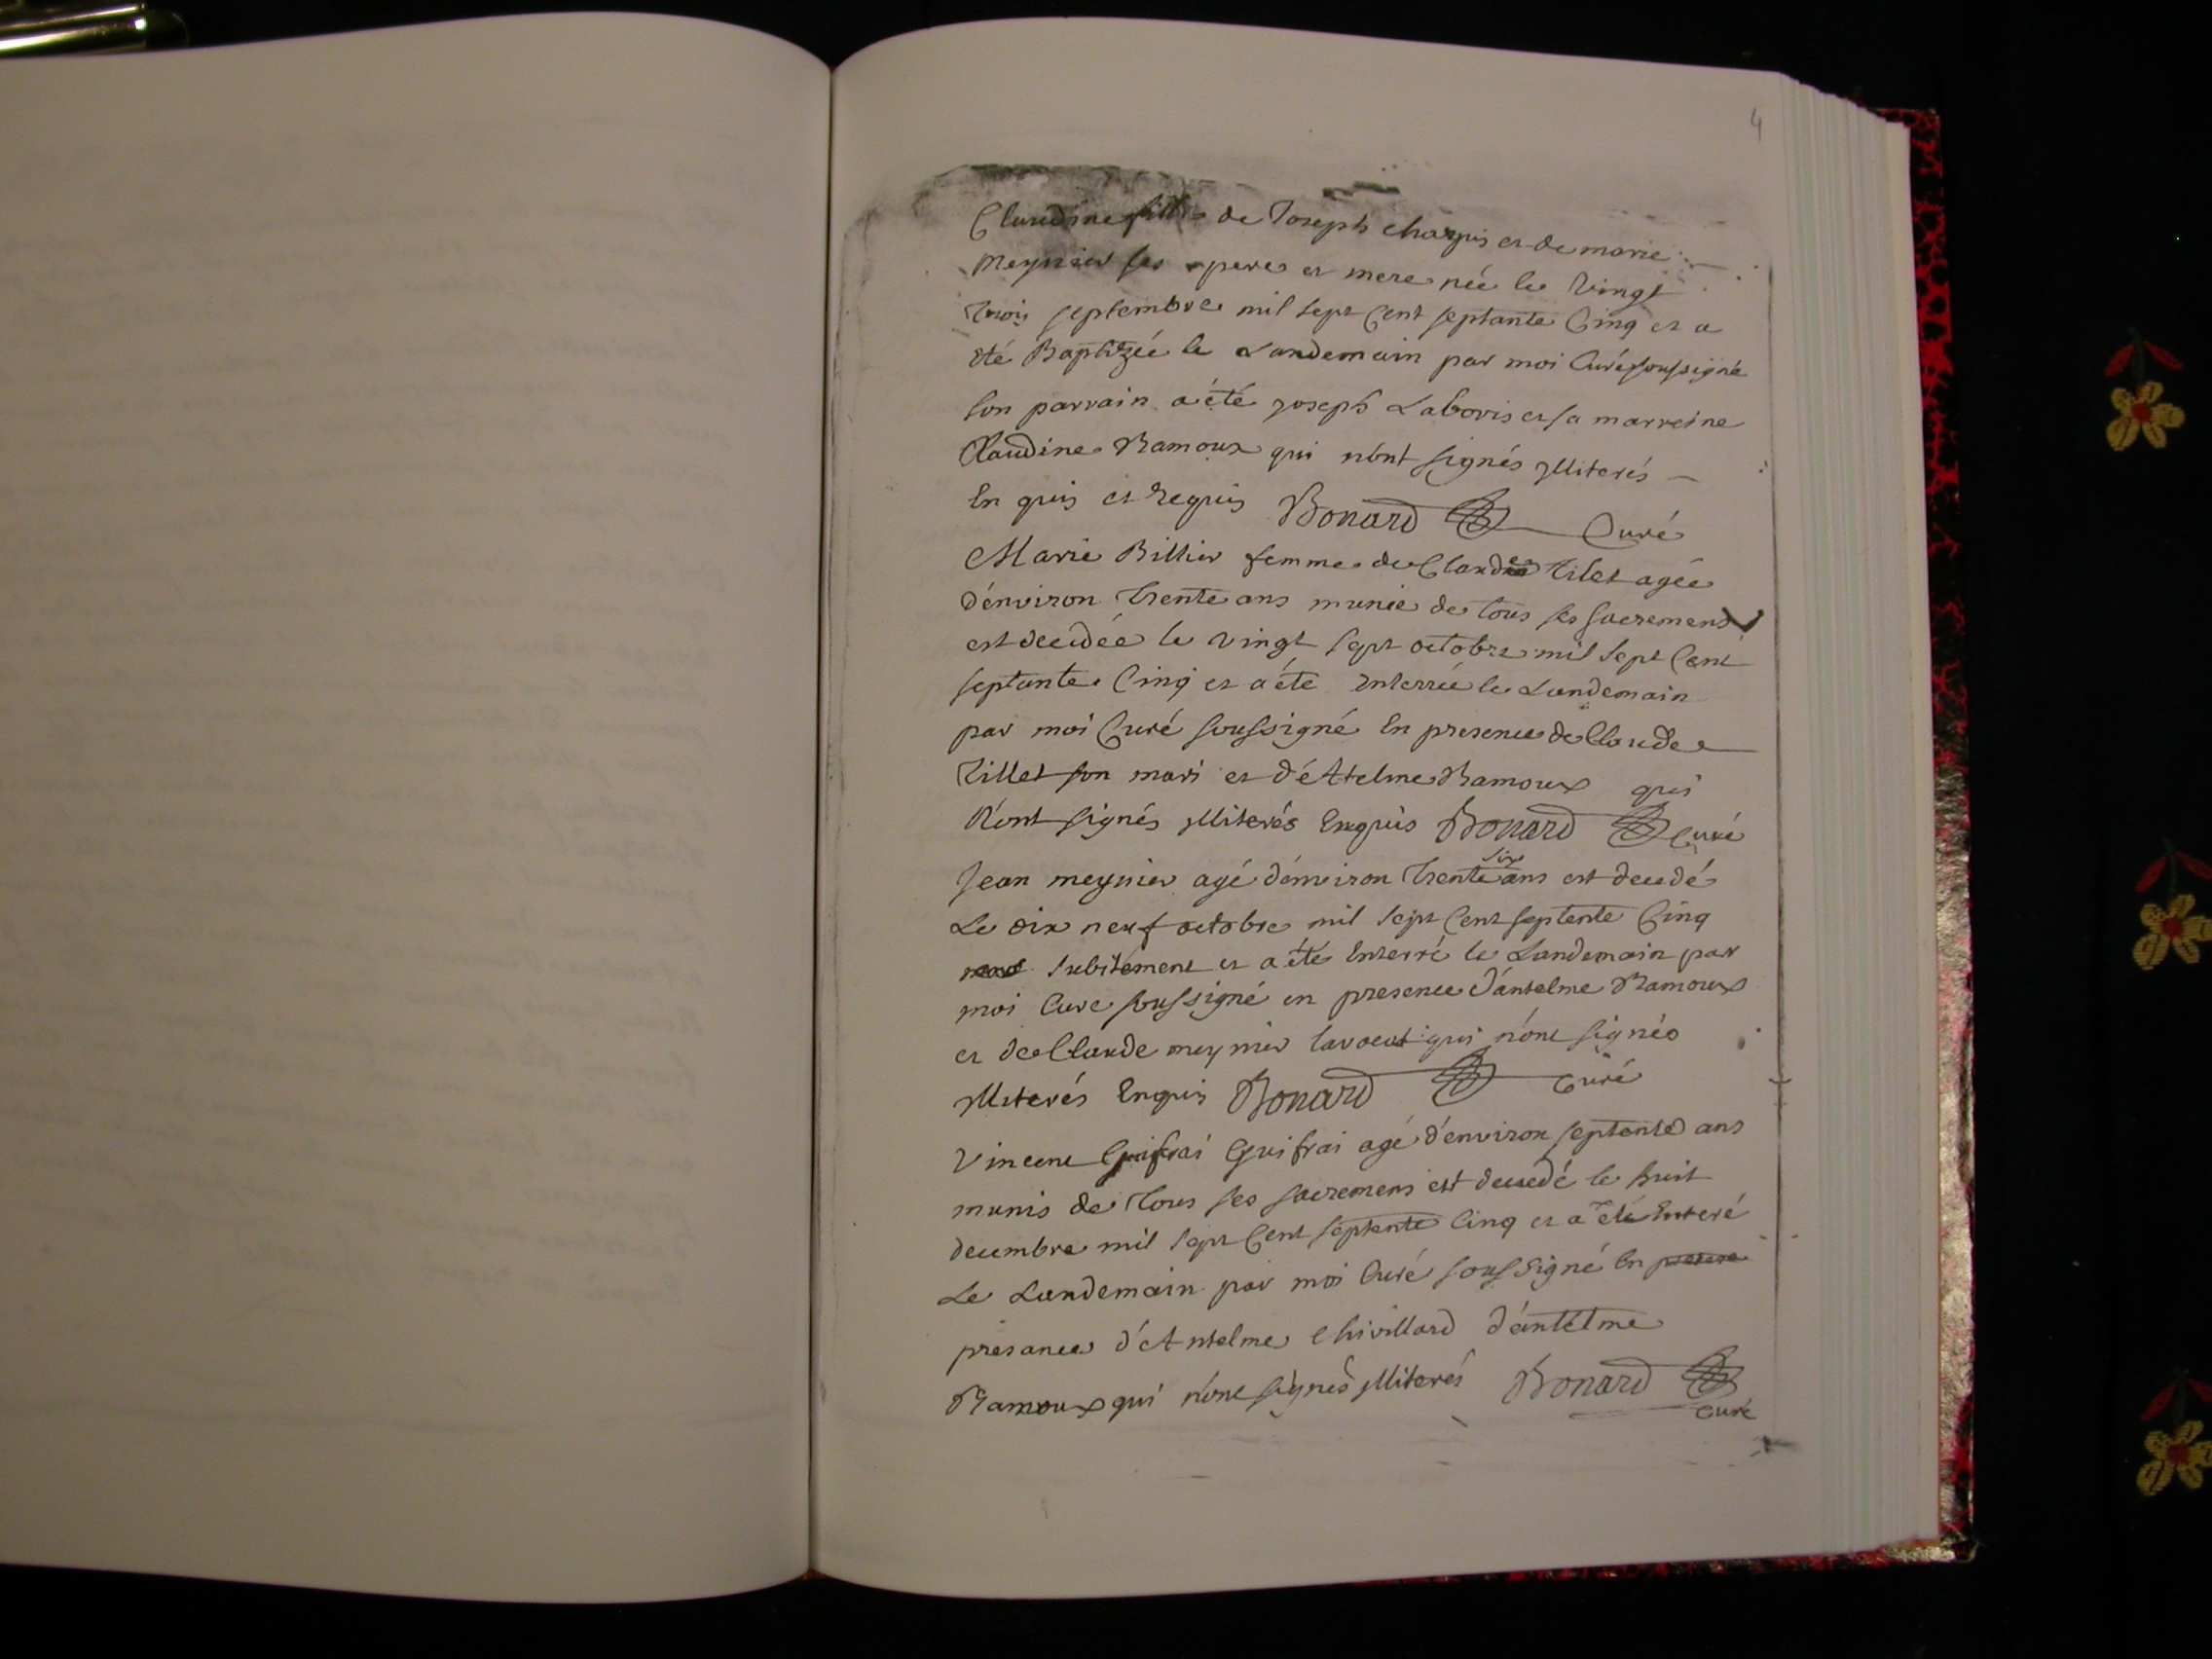 4
Claudine fille de Joseph charpin et de marie
meynier ses pere et mere née le vingt
trois septembre mil sept cent septante cinq et a
été Baptizée le Landemain par moi Curé soussigné
son parrain a été joseph Laboris et sa marreine
Claudine Ramoux qui n'ont signés illiterés
En quis et requis Bonard Curé
Marie Billier femme de Claude tilet agée
d'environ trente ans munie de tous ses sacremens
est decedée le vingt sept octobre mil sept cent
septante cinq et a été enterrée le Landemain
par moi Curé soussigné En presence de Claude
tillet son mari et d'Atelme Ramoux qui
n'ont signés illiterés Enquis Bonard Curé
Jean meynier agé d'environ trente six ans est decedé
Le dix neuf octobre mil sept cent septente cinq
subitement et a été Enterré le Landemain par
moi Curé soussigné en presence d'antelme Ramoux
et de Claude meynier qui n'ont signés
illiterés Enquis Bonard Curé
Vincent Guifrai Guifrai agé d'environ septente ans
munis de tous ses sacremens est decedé le huit
decembre mil sept cent septente cinq et a été Enteré
Le Landemain par moi Curé soussigné En presence
presance d'Antelme Chivillard d'antelme
Ramoux qui n'ont signés illiterés Bonard
Curé